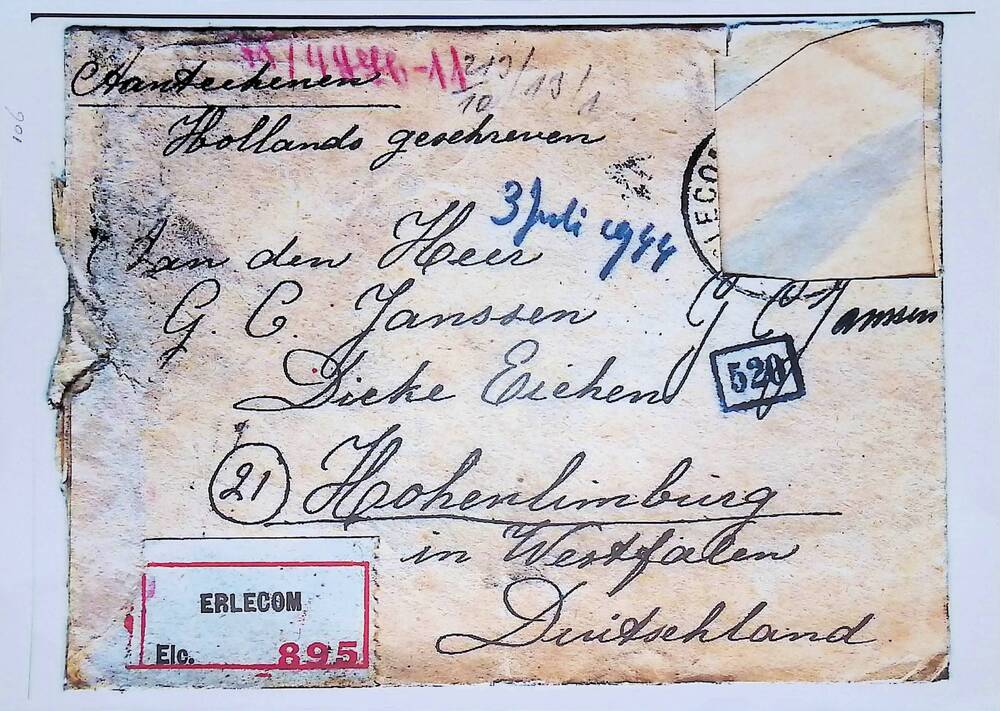 Aantekenen
213/13/1
10
Hollands geschreven
3 Juli 1944
Aan den Heer
G. C. Janssen
G C Janssen
Dicke Eichen
520
21
Hohenlimburg
in Westfalen
Duitschland
ERLECOM
Elc. 895
106